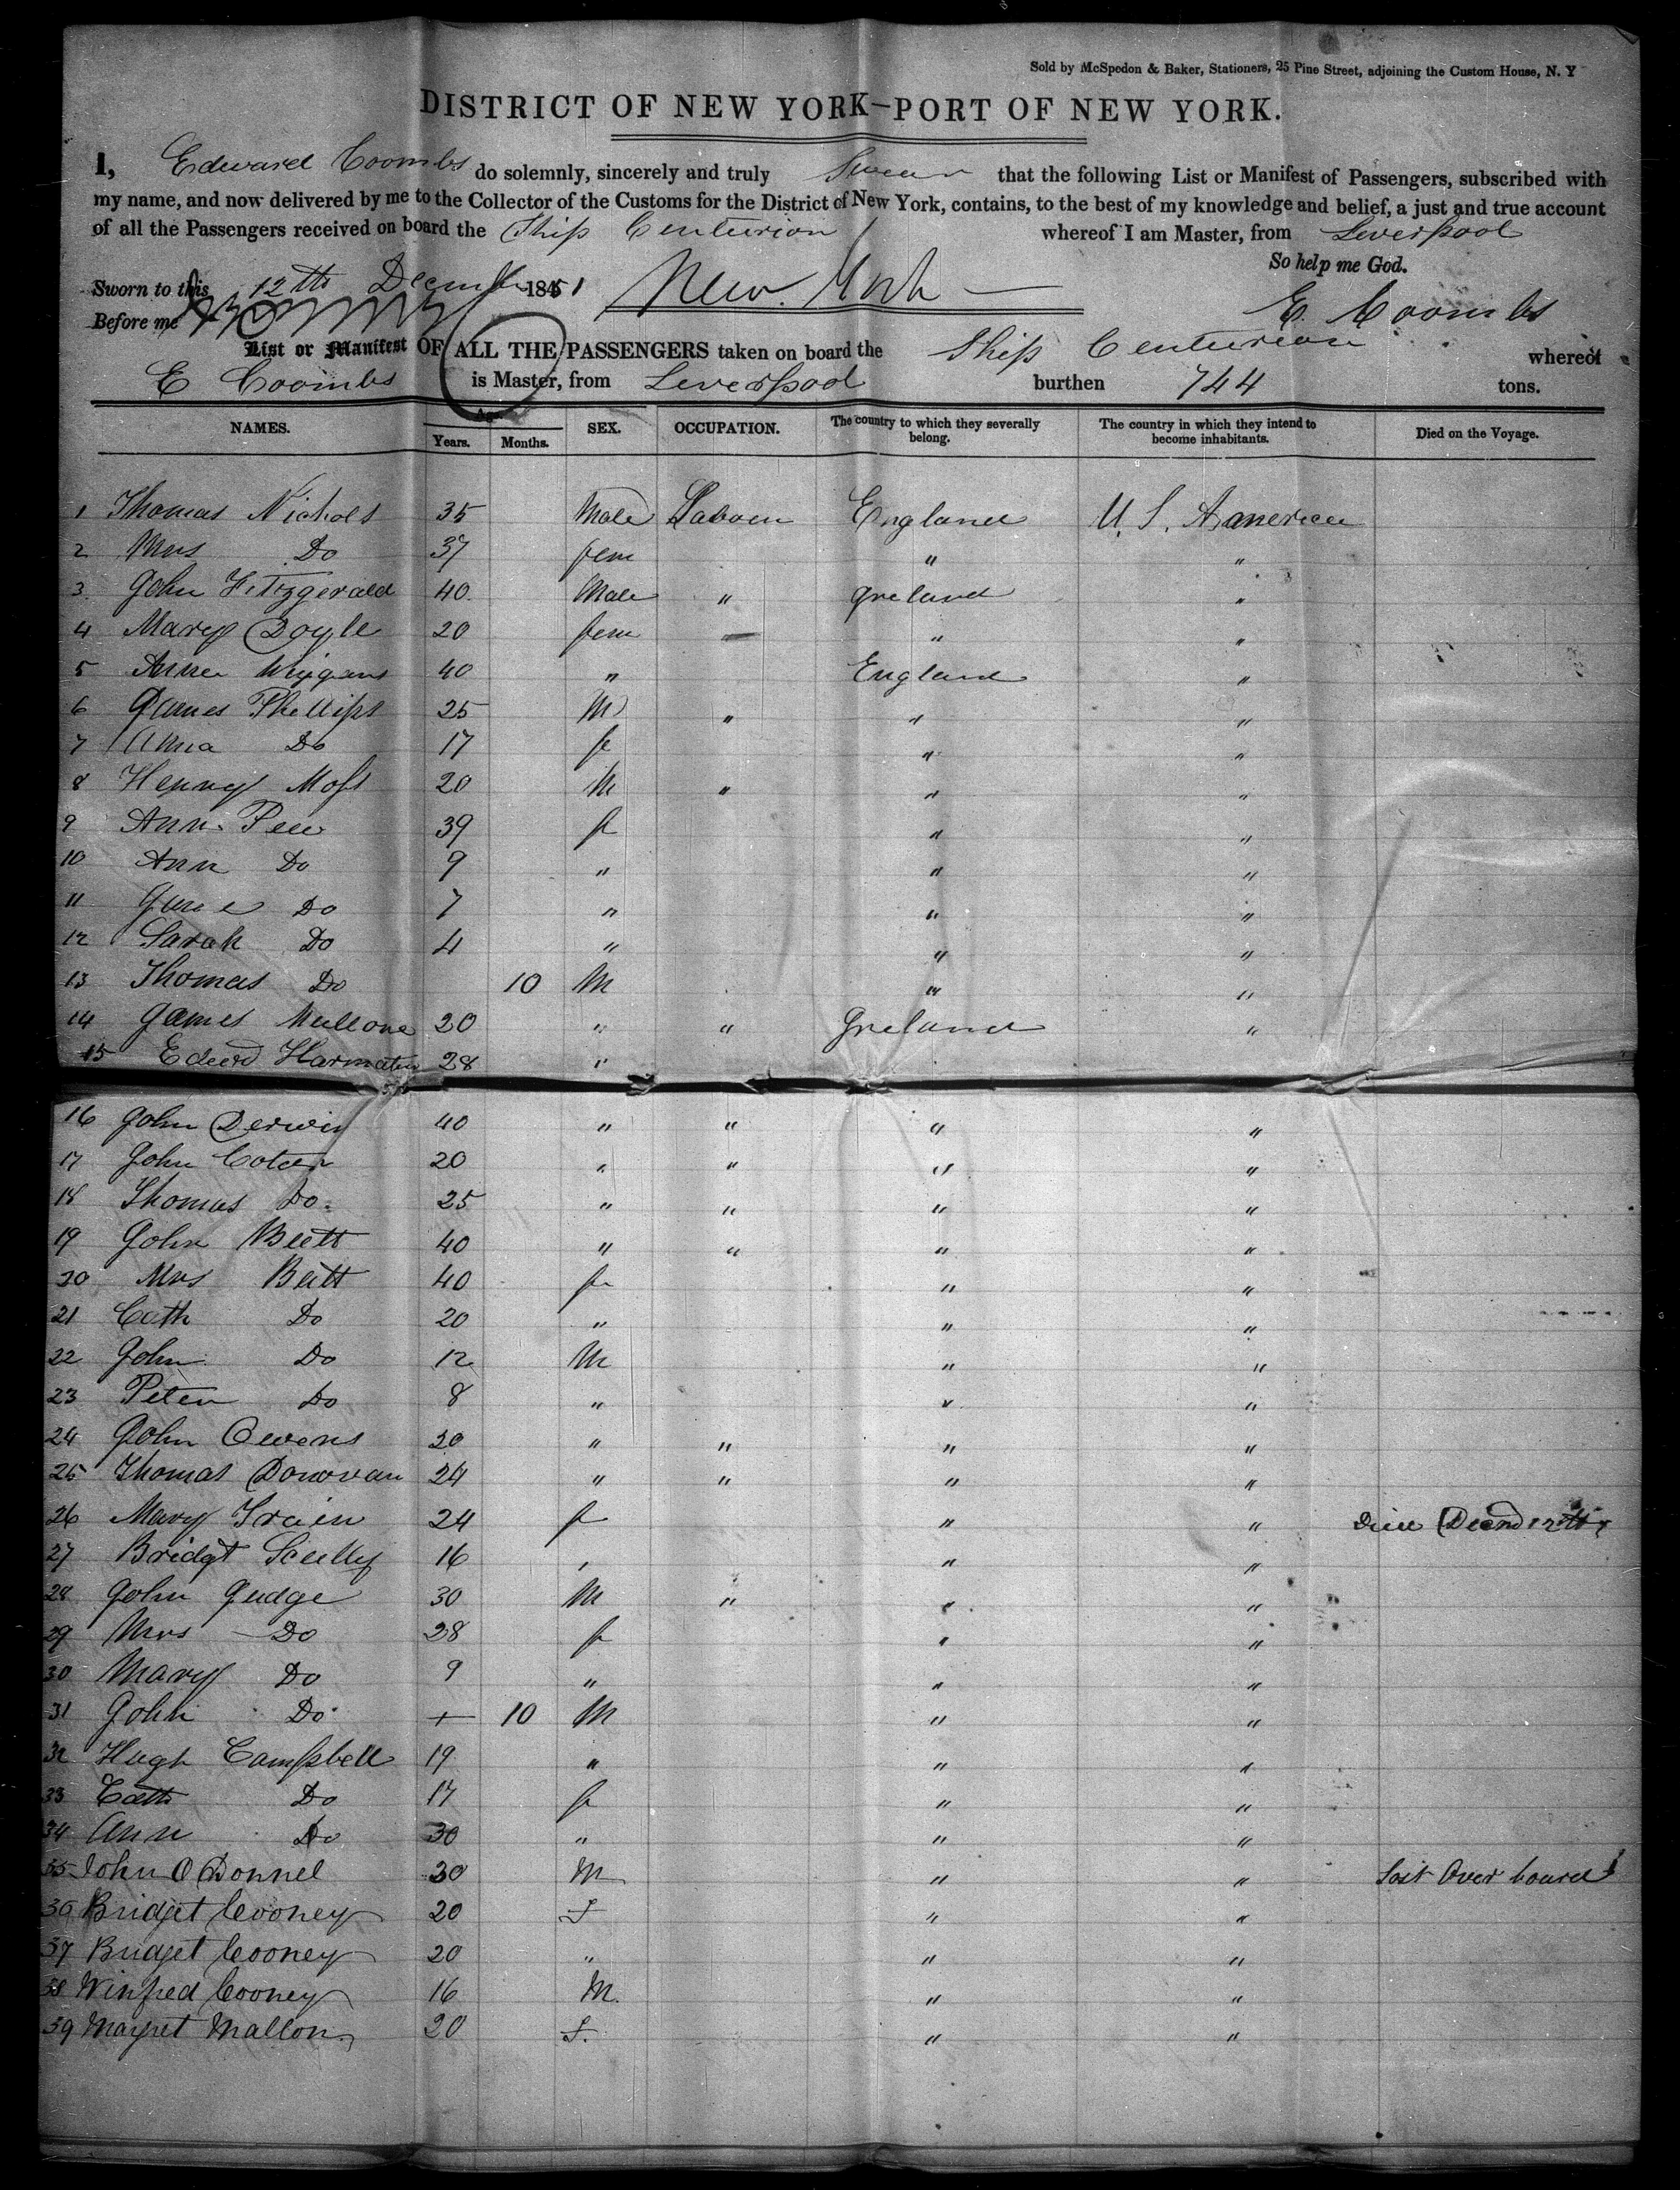 Sold by McSpedon & Baker, Stationers, 25 Pine Street, adjoining the Custom House, N. Y
DISTRICT OF NEW YORK—PORT OF NEW YORK.
I, Edward Coombs do solemnly, sincerely and truly Swear that the following List or Manifest of Passengers, subscribed with
my name, and now delivered by me to the Collector of the Customs for the District of New York, contains, to the best of my knowledge and belief, a just and true account
of all the Passengers received on board the Ship Centurion whereof I am Master, from Liverpool
So help me God.
Sworn to this 12th Decemb 1851 New York
Before me E. Coombs
List or Manifest OF ALL THE PASSENGERS taken on board the Ship Centurion whereof
E Coombs is Master, from Liverpool burthen 744 tons.
NAMES. Age. Years. Months. SEX. OCCUPATION. The country to which they severally belong. The country in which they intend to become inhabitants. Died on the Voyage.
1 Thomas Nichols 35 Male England U. S. America
2 Mrs Do 37 fem " "
3 John Fitzgerald 40 Male " Ireland "
4 Mary Doyle 20 fem — " "
5 Anne Wiggans 40 " England "
6 James Phillips 25 M " " "
7 Anna Do 17 fe " "
8 Henry Moss 20 M " " "
9 Ann Pew 39 f " "
10 Ann Do 9 " " "
11 Jane Do 7 " " "
12 Sarah Do 4 " " "
13 Thomas Do 10 M " "
14 James Mullone 20 " " Ireland "
15 Edwd 28 "
16 John Derwin 40 " " " "
17 John 20 " " " "
18 Thomas Do 25 " " " "
19 John Beitt 40 " " " "
20 Mrs Beitt 40 f " "
21 Cath Do 20 " " "
22 John Do 12 M " "
23 Peter Do 8 " " "
24 John Owens 20 " " " "
25 Thomas Donovan 24 " " " "
26 Mary 24 f " " 12th
27 Bridgt Scully 16 " " "
28 John Judge 30 M " " "
29 Mrs Do 28 f " "
30 Mary Do 9 " " "
31 John Do + 10 M " "
32 Hugh Campbell 19 " " "
33 Cath Do 17 f " "
34 Ann Do 30 " " "
35 John O Donnel 30 M " " Lost Over board
36 Bridget Cooney 20 F " "
37 Bridget Cooney 20 " " "
38 Winfred Cooney 16 M. " "
39 Magret Mallon 20 F. " "